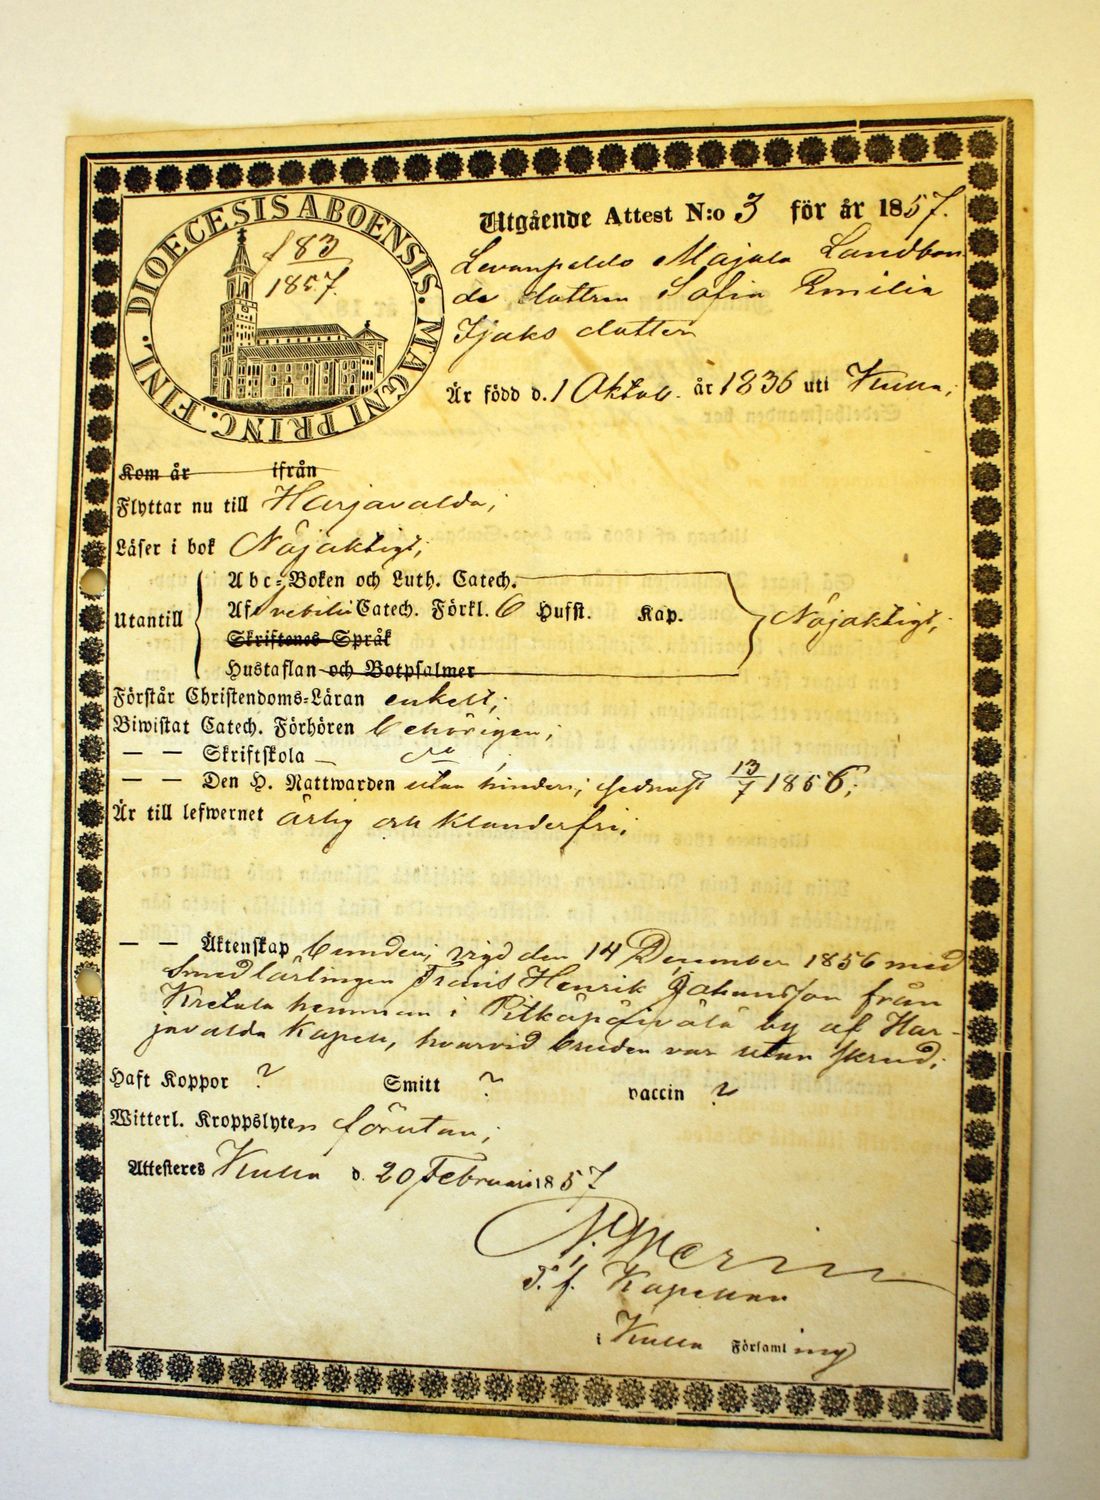 DIOECESIS ABOENSIS. MAGNI PRINC. FINL.
f 83
1857.
Utgående Attest N:o 3 för år 1857.
Levanpeldo Majala Landbon-
de dottren Sofia Emilia
Isaks dotter
Är född d. 1 Oktob. år 1836 uti Kulla;
Kom år ifrån
Flyttar nu till Harjavalda;
Läser i bok Nöjaktigt;
Utantill
Abc-Boken och Luth. Catech.
Af Svebilii Catech. Förkl. 6 Hufst. Kap. Nöjaktigt;
Skriftenes Språk
Hustaflan och Botpsalmer
Förstår Christendoms-Läran enkelt;
Biwistat Catech. Förhören behörigen;
— — Skriftskola — do ;
— — Den H. Nattwarden utan hinder; sednast 13/7 1856;
Är till lefwernet ärlig och klanderfri;
— — Äktenskap bunden; vigd den 14 December 1856 med
Smedlärlingen Frans Henrik Johansson från
Kretala hemman i Pitkäpäivälä by af Har-
javalda Kapell, hvarvid bruden var utan skrud;
Haft Koppor ? Smitt ? vaccin ?
Witterl. Kroppslyten förutan;
Attesteres Kulla d. 20 Februari 1857
N.
T. f. Kapellan
i Kulla Församling